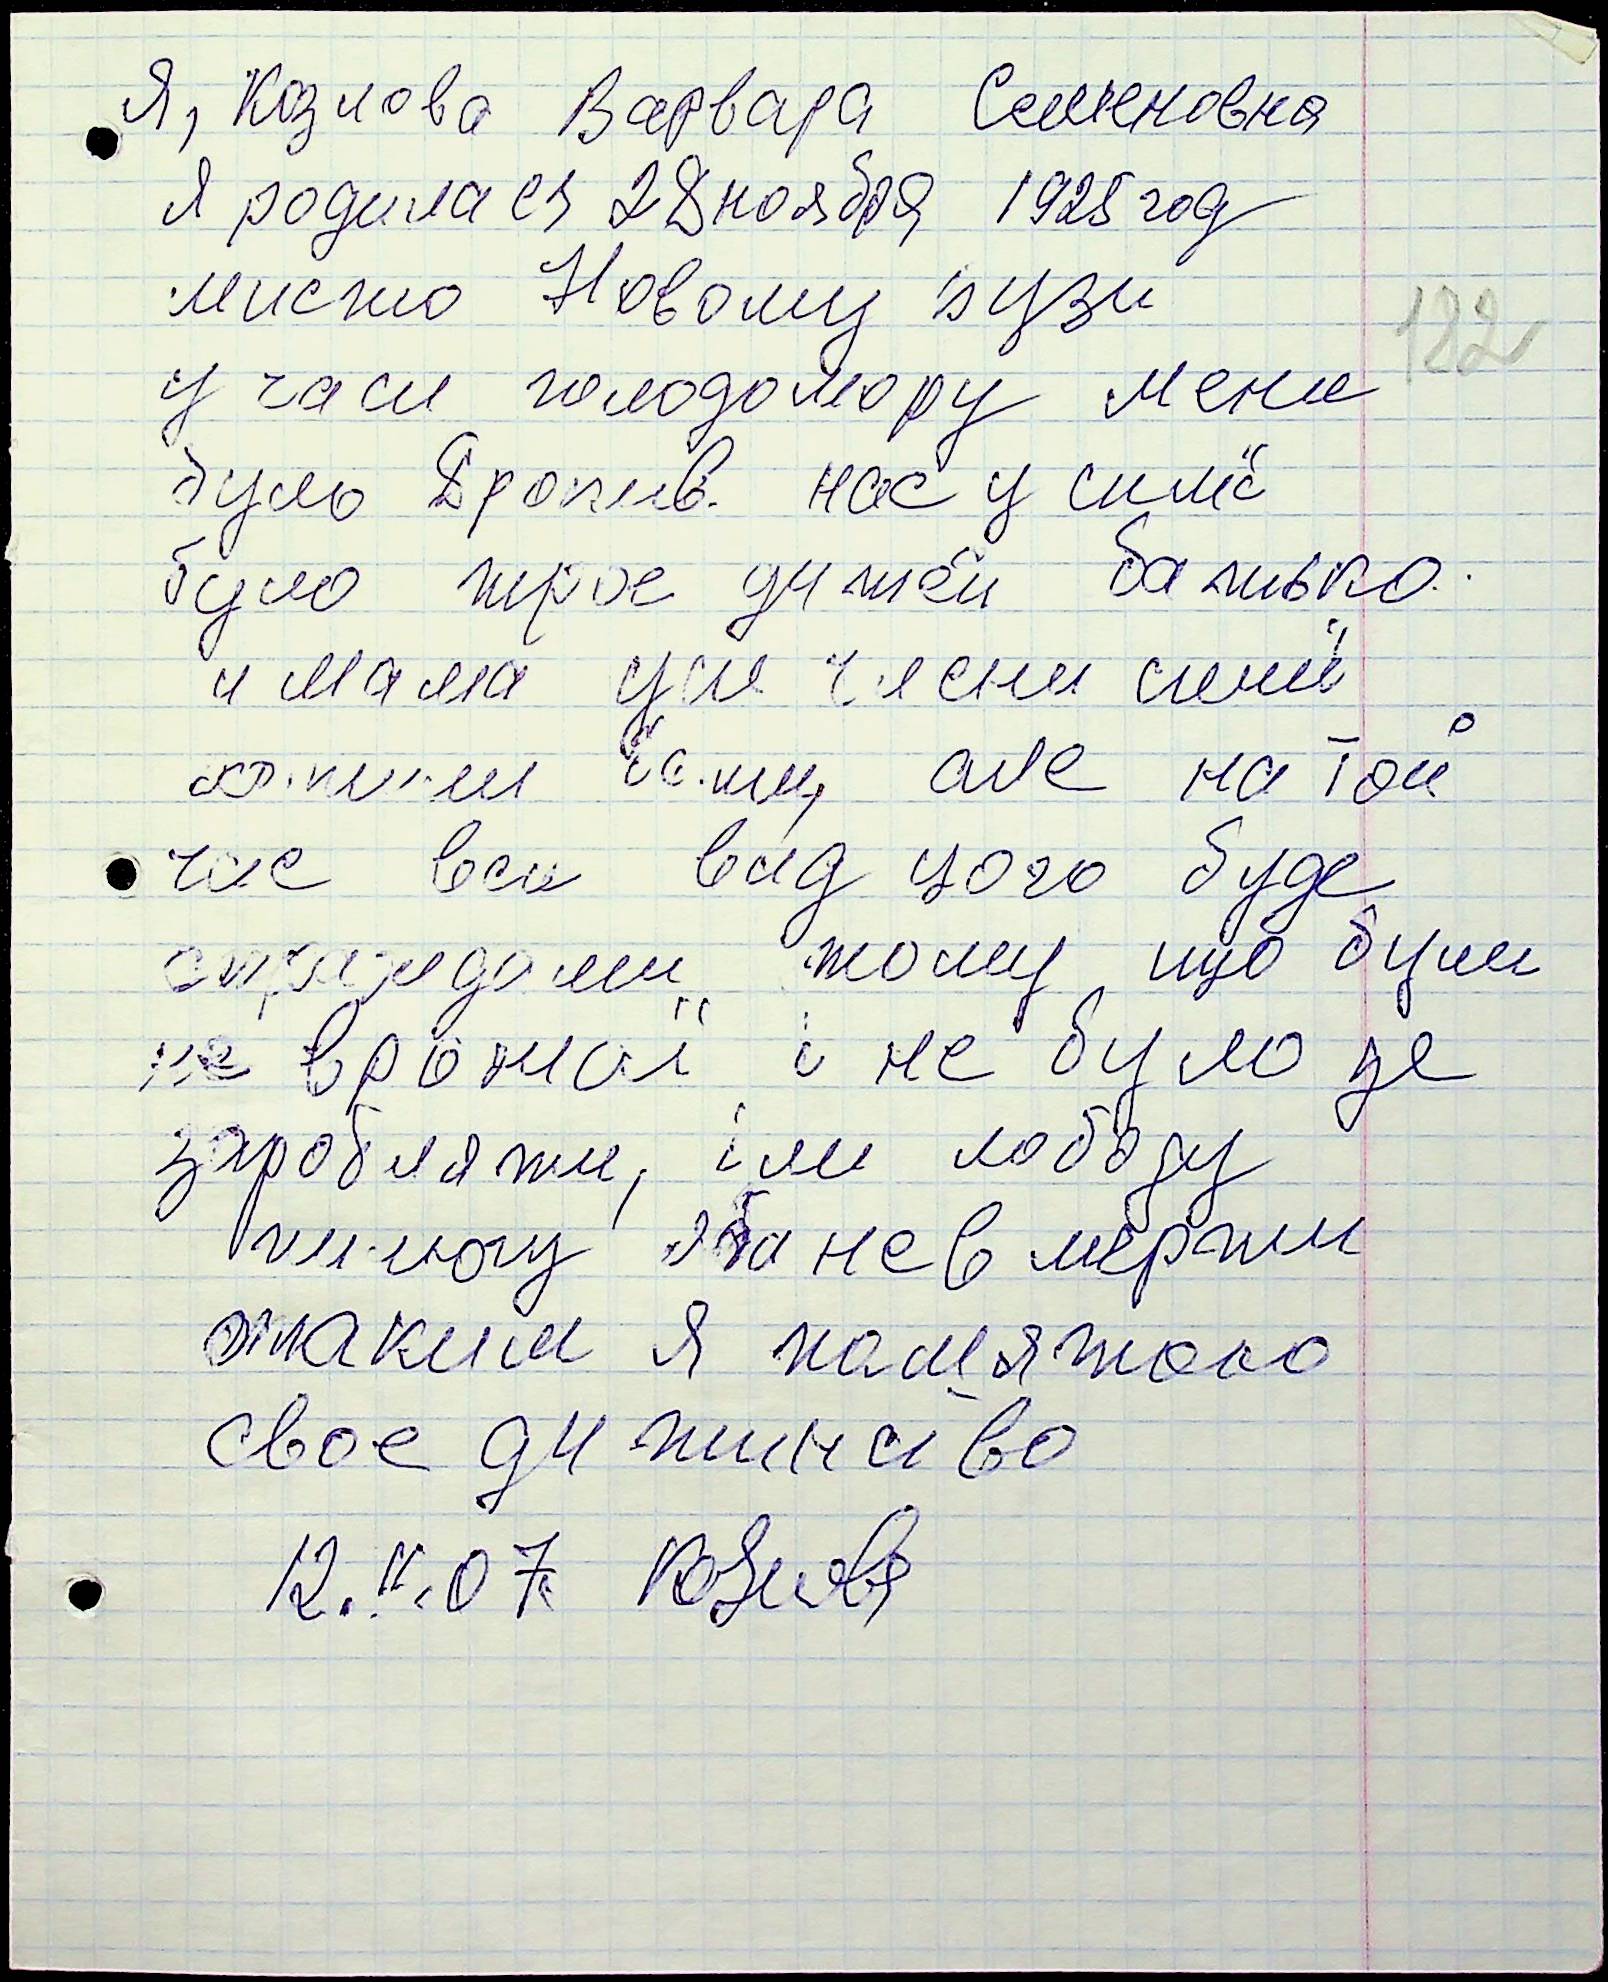 Я, Козлова Варвара Семеновна
я родилася 28 ноября 1925 год
мисто Новому бузи
122
у часи голодомору мени
було 8 рокив. нас у симї
було трое дитей батько.
и мама уси члени симї
хотили їсти, але на той
час вси вид цого буде
страждали тому що були
не врожаї і не було де
заробляти, їли лободу
шоб не вмерти
отаким я памятаю
свое дитинство
12.II.07 Козлова